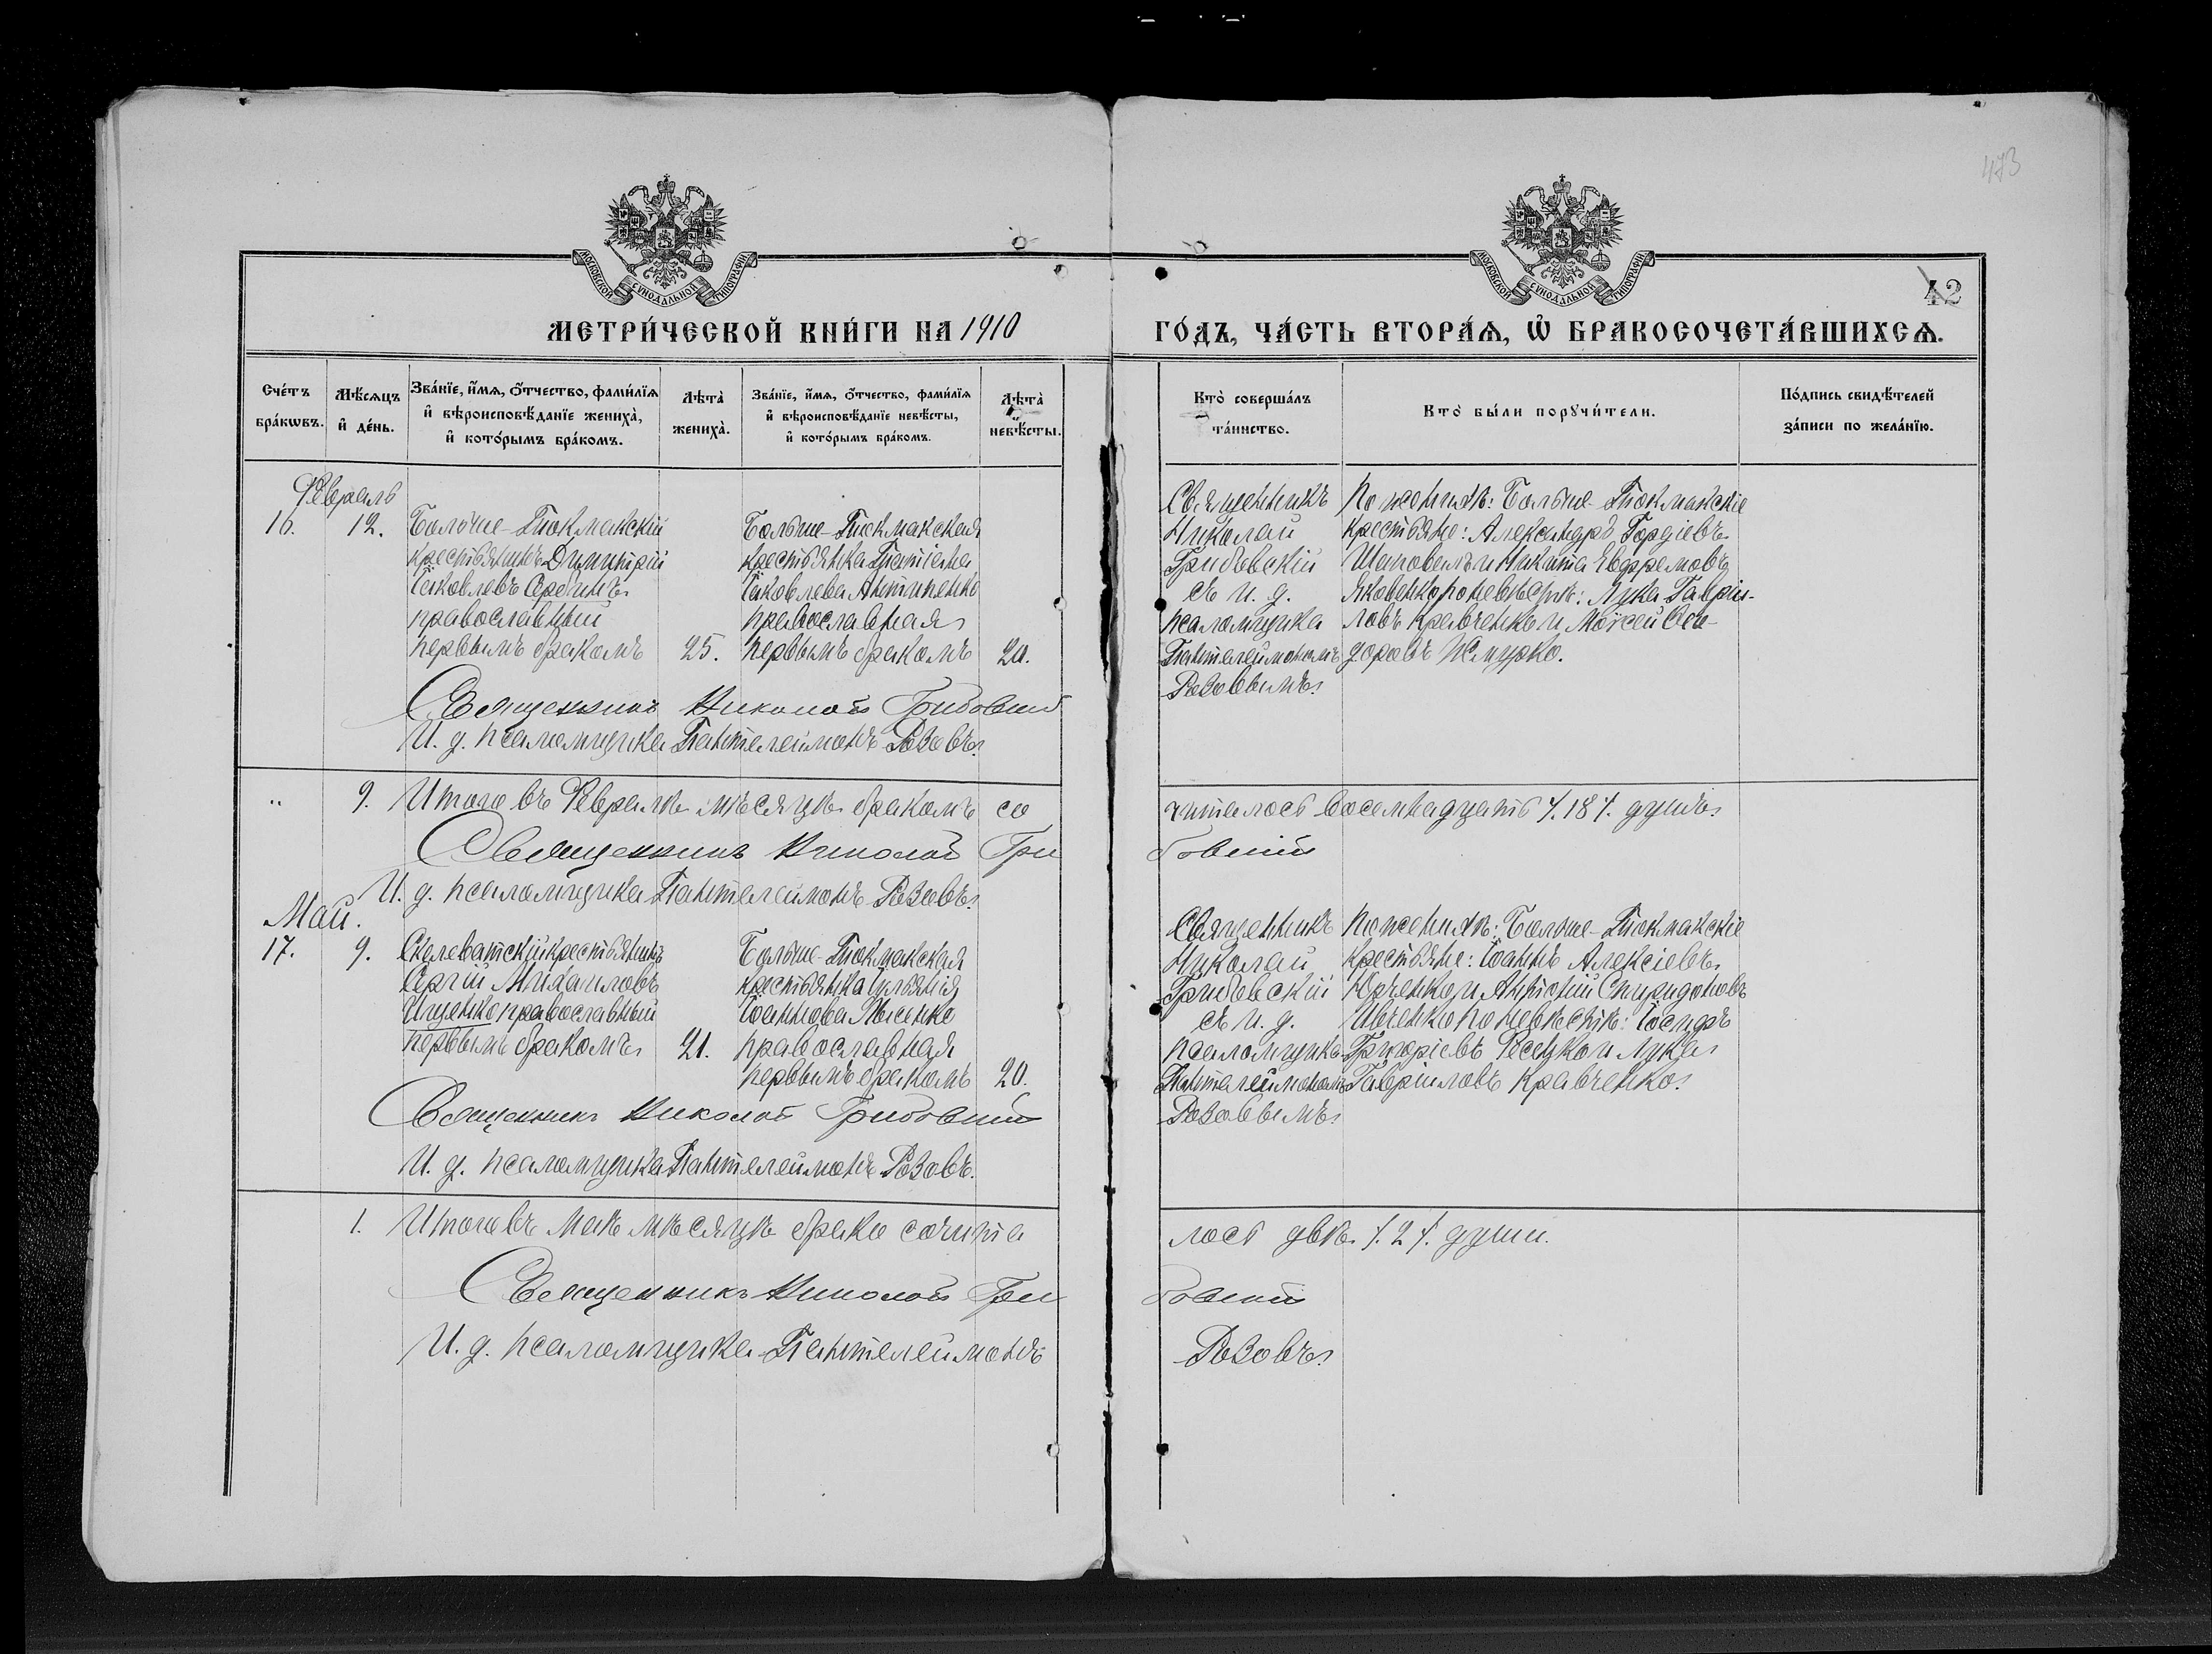 473
МОСКОВСКОЙ СѴНОДАЛЬНОЙ ТИПОГРАФІИ
МОСКОВСКОЙ СѴНОДАЛЬНОЙ ТИПОГРАФІИ
42
МЕТРИ́ЧЕСКОЙ КНИ́ГИ НА 1910
ГО́ДЪ, ЧА́СТЬ ВТОРА́Ѧ, Ѽ БРАКОСОЧЕТА́ВШИХСѦ.
Сче́тъ бра́кѡвъ.
Мѣ́сѧцъ и҆ де́нь.
Зва́нїе, и҆́мѧ, о҆́тчество, фами́лїѧ
и҆ вѣроисповѣ́данїе жениха̀,
и҆ кото́рымъ бра́комъ.
Лѣта̀ жениха̀.
Зва́нїе, и҆́мѧ, о҆́тчество, фами́лїѧ
и҆ вѣроисповѣ́данїе невѣ́сты,
и҆ кото́рымъ бра́комъ.
Лѣта̀ невѣ́сты.
Кто̀ соверша́лъ та́инство.
Кто̀ бы́ли порꙋчи́тели.
По́дпись свидѣ́телей за́писи по жела́нїю.
Февраль
16. 12.
Больше-Токмакскій
крестьянинъ Димитрій
Іаковлевъ Середитъ
православный
первымъ бракомъ 25.
Больше-Токмакская
крестьянка Татіана
Іаковлева Антипенко
православная
первымъ бракомъ 20.
Священникъ
Николай
Грибовскій
съ и. д.
псаломщика
Пантелеймономъ
Розовымъ.
По женихѣ: Больше-Токмакскіе
крестьяне: Александръ Гордіевъ
Шаповалъ и Никита Евфремовъ
Яковенко, по невѣстѣ: Лука Гаврі-
ловъ Кравченко и Моѵсей Ѳео-
доровъ Жмурко.
Священникъ Николай Грибовскій
И. д. псаломщика Пантелеймонъ Розовъ.
" 9. Итого въ Февралѣ мѣсяцѣ бракомъ со
читалось восемнадцать /.18/. душъ.
Священникъ Николай Гри
бовскій
И. д. псаломщика Пантелеймонъ Розовъ.
Май.
17. 9.
Скелеватскій крестьянинъ
Сергій Михаиловъ
Ищенко православный
первымъ бракомъ 21.
Больше-Токмакская
крестьянка Іуліанія
Іоаннова Лысенко
православная
первымъ бракомъ 20.
Священникъ
Николай
Грибовскій
съ и. д.
псаломщика
Пантелеймономъ
Розовымъ.
По женихѣ: Больше-Токмакскіе
крестьяне: Іоаннъ Алексіевъ
Юрченко и Антоній Спиридоновъ
Ивченко по невѣстѣ: Іосифъ
Григоріевъ Несецко и Лука
Гавріиловъ Кравченко.
Священникъ Николай Грибовскій
И. д. псаломщика Пантелеймонъ Розовъ.
1. Итого въ Маѣ мѣсяцѣ брако сочита
лось двѣ /.2/. души.
Священникъ Николай Гри
бовскій
И. д. псаломщика Пантелеймонъ
Розовъ.